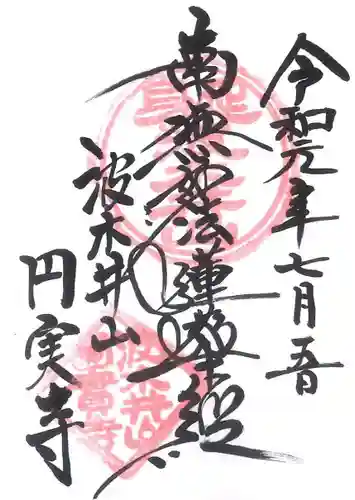 令和元年七月吾
南無妙法蓮華経
波木井山
円実寺